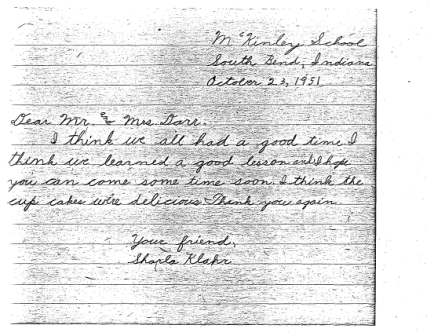 McKinley School
South Bend, Indiana
October 23, 1951
Dear Mr. & Mrs Darr.
I think we all had a good time I
think we learned a good lesson and I hope
you can come some time soon. I think the
cup cakes were delicious Thank you again.
Your friend,
Sharla Klahr